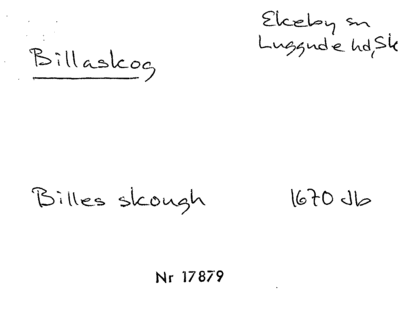 Ekeby sn
Billaskog
Luggude hd, Sk
Billes skough 1670 Jb
Nr 17879